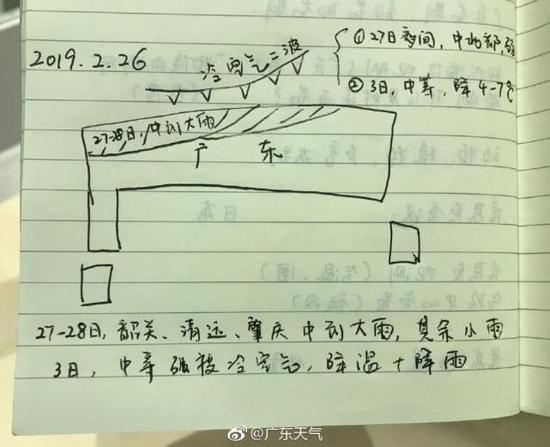 2019.2.26
冷空气二波
①27日夜间,中北部,弱
②3日,中等,降4-7℃
27-28日,中到大雨
广东
27-28日,韶关、清远、肇庆中到大雨,其余小雨
3日,中等强度冷空气,降温+降雨
@广东天气